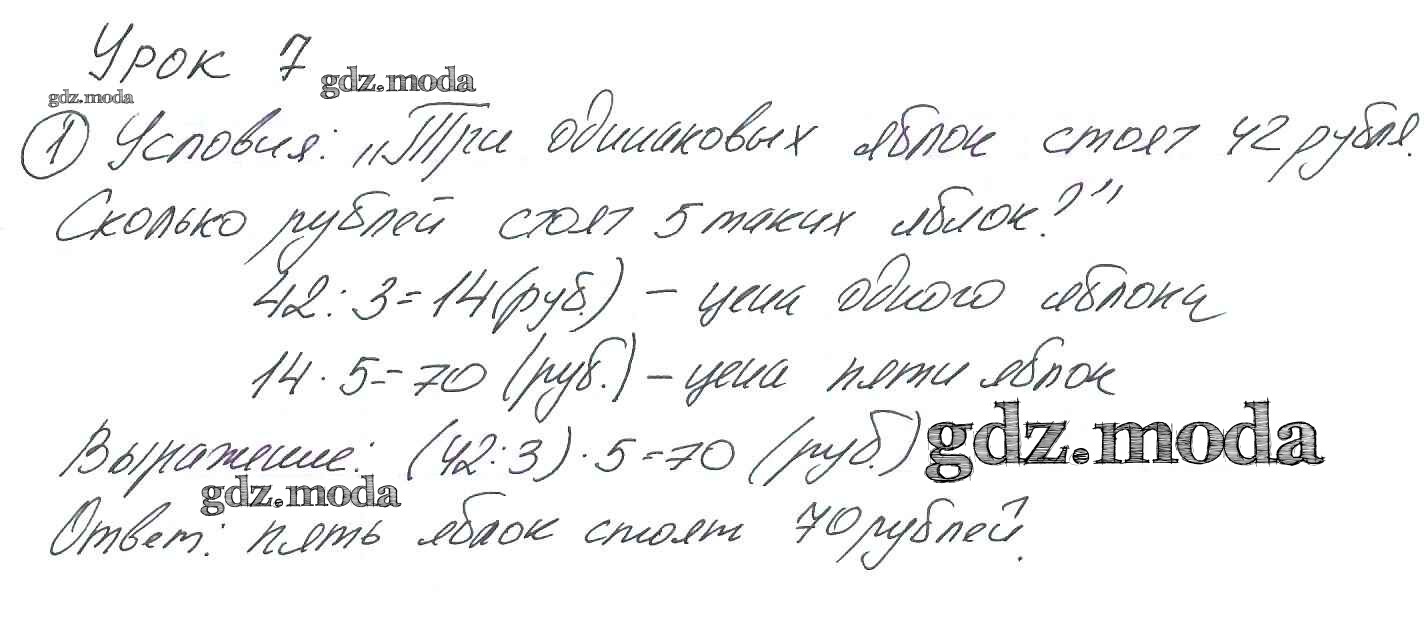 Урок 7
gdz.moda
gdz.moda
1 Условия: „Три одинаковых яблок стоят 42 рубля.
Сколько рублей стоят 5 таких яблок?”
42 : 3 = 14 (руб.) – цена одного яблока
14 · 5 = 70 (руб.) – цена пяти яблок
gdz.moda
Выражение: (42 : 3) · 5 = 70 (руб.)
gdz.moda
Ответ: пять яблок стоят 70 рублей.